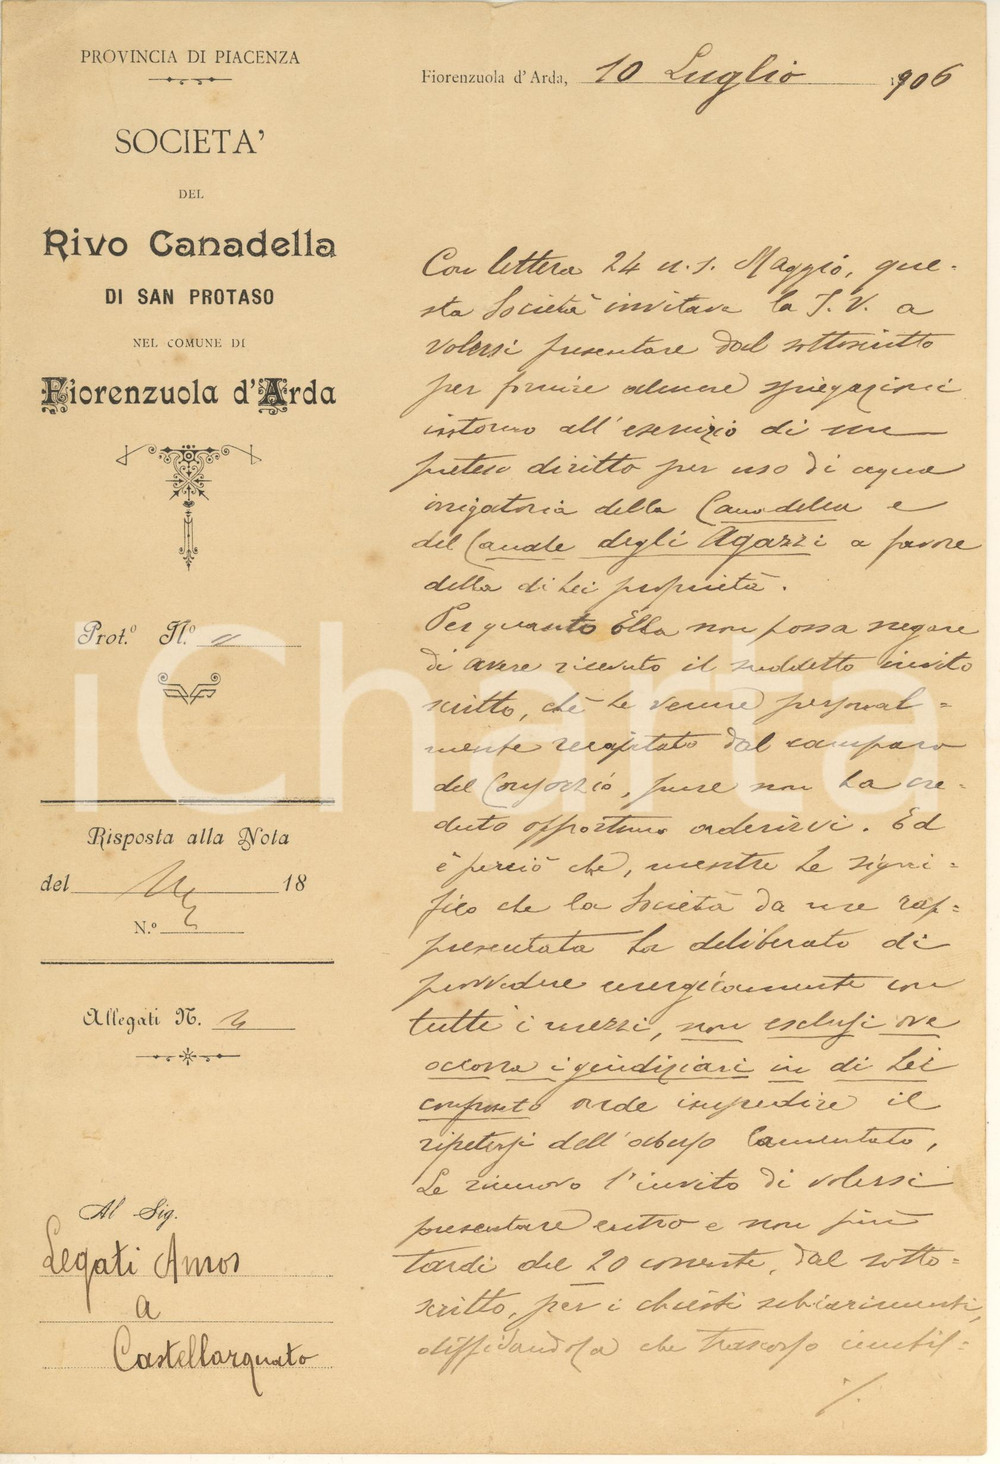 PROVINCIA DI PIACENZA
SOCIETA'
DEL
Rivo Canadella
DI SAN PROTASO
NEL COMUNE DI
Fiorenzuola d'Arda
Prot.º N.º
Risposta alla Nota
del 18
N.º
Allegati N.
Al Sig.
Legati Amos
a
Castellarquato
Fiorenzuola d'Arda, 10 Luglio 906
Con lettera 24 u. s. Maggio, que-
sta Società invitava la S. V. a
volersi presentare dal sottoscritto
per fornire almeno spiegazioni
intorno all'esercizio di un
preteso diritto per uso di acqua
irrigatoria della Canadella e
del Canale degli Agazzi a favore
della di Lei proprietà.
Per quanto Ella non possa negare
di avere ricevuto il suddetto invito
scritto, chè Le venne personal=
mente recapitato dal camparo
del Consorzio, pure non ha cre-
duto opportuno aderirvi. Ed
è perciò che, mentre Le signi=
fico che la Società da me rap=
presentata ha deliberato di
provvedere energicamente con
tutti i mezzi, non esclusi ove
occorra i giudiziari in di Lei
confronto onde impedire il
ripetersi dell'abuso lamentato,
Le rinnovo l'invito di volersi
presentare entro e non più
tardi del 20 corrente, dal sotto=
scritto, per i chiesti schiarimenti,
diffidandola che trascorso inutil=
./.
iCharta